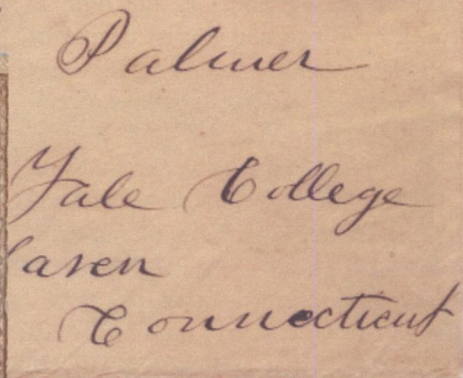 Palmer
Yale College
aven
Connecticut